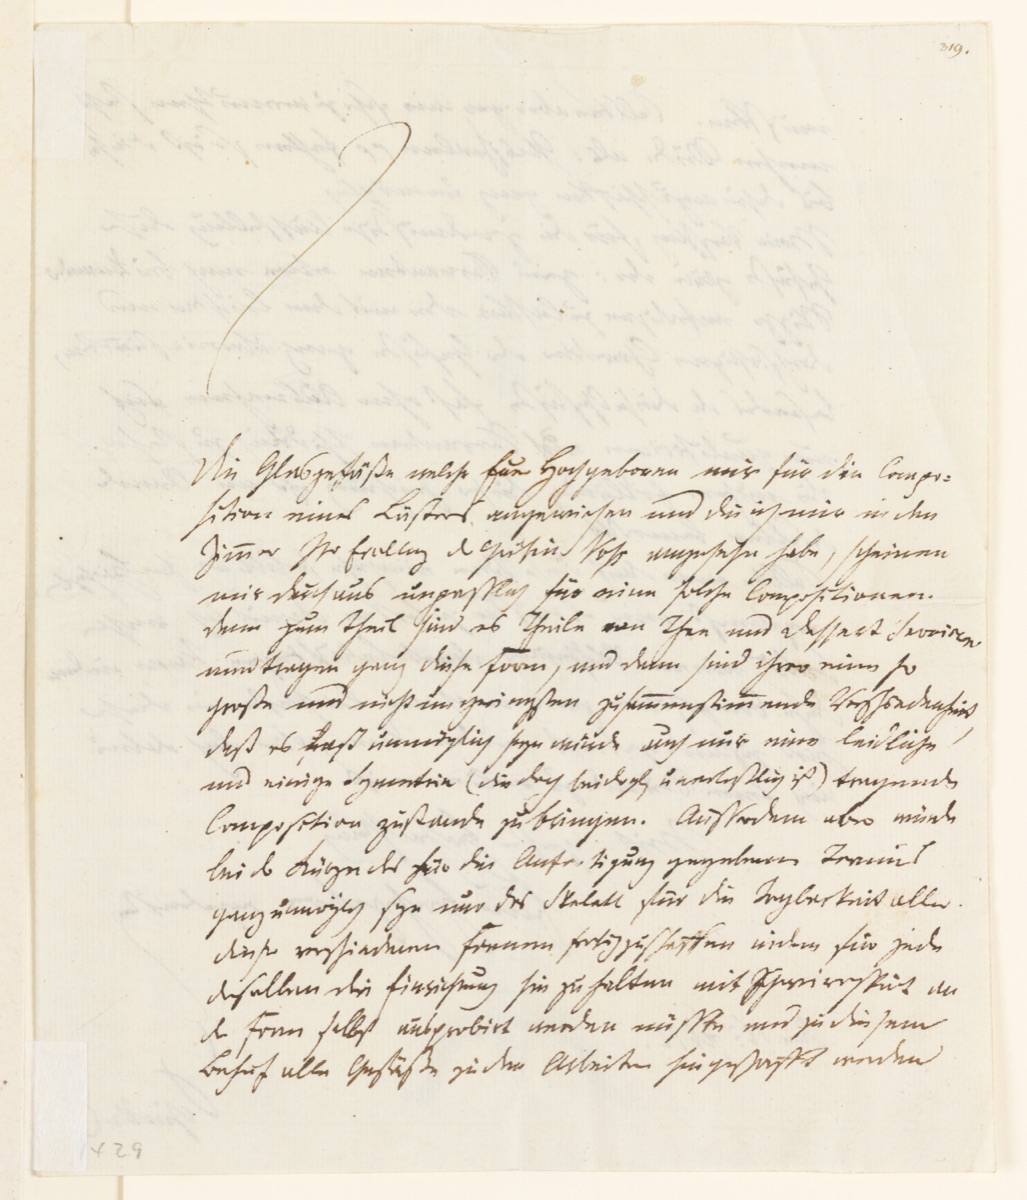 319.
Die Glasgefäße welche Euer Hochgeboren mir für die Compo-
sition eines Lüsters angewiesen und die ich mir in den
Zimer Ihr Excellenz der Gräfin Voß angesehn habe, scheinen
mir durchaus unpasslich für eine solche Compositionen.
denn zum Theil sind es Theile von Thee und Dessert Servicen
und tragen ganz diese Form, und dann sind ihrer eine so
große und nicht im geringsten zusammenstimende Verschiedenheit,
daß es fast unmöglich seyn würde auch nur eine leidliche
und einige Symetrie (die doch hierdurch unerlaßlich ist) tragende
Composition zustande zu bringen. Ausserdem aber würde
bei der Kürze des für die Anfertigung gegebenen Termins
ganz unmöglich seyn nur das Skelett für die Tragbarkeit aller
dieser verschiedenen Formen fertigzuschaffen indem für jede
derselben die Einrichtung sie zu halten mit Schwierigkeit an
der Form selbst ausprobirt werden müsste und zu diesem
Behuf alle Gefäße zu den Arbeiten hingeschafft werden
429